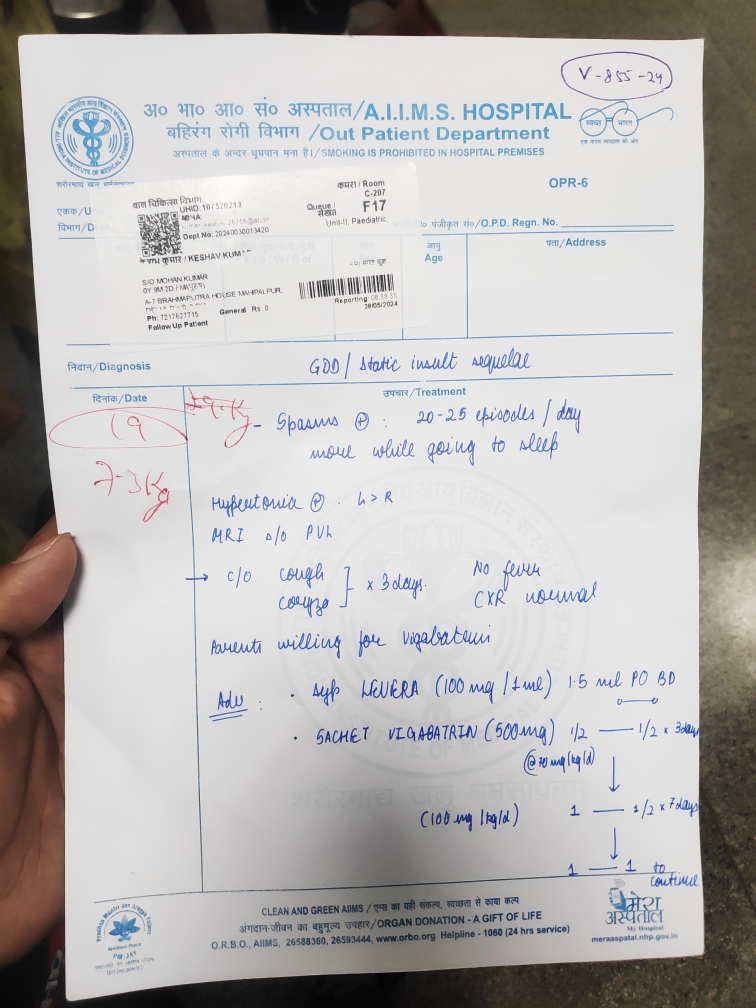 V-855-24
अ० भा० आ० सं० अस्पताल/A.I.I.M.S. HOSPITAL
बहिरंग रोगी विभाग /Out Patient Department
अस्पताल के अन्दर धूम्रपान मना है।/SMOKING IS PROHIBITED IN HOSPITAL PREMISES
स्वच्छ भारत
एक कदम स्वच्छता की ओर
ALL INDIA INSTITUTE OF MEDICAL SCIENCES
OPR-6
एकक/U
विभाग/D
पंजीकृत सं०/O.P.D. Regn. No.
बाल चिकित्सा विभाग
UHID:107520213
कमरा / Room
C-207
Queue /
संख्या
F17
Unit-II, Paediatric,
Dept No: 20240030013420
कुमार / KESHAV KUM
S/O MOHAN KUMAR
0Y 9M 2D / M(पुरुष)
A-7 BRAHMAPUTRA HOUSE MAHIPALPUR,
Ph: 7217627715
General Rs 0
Follow Up Patient
Reporting
29/05/2024
आयु
Age
पता/Address
निदान/Diagnosis
GDD/ Static insult sequelae
दिनांक/Date
उपचार/Treatment
19
7.3Kg
- Spasms + : 20-25 episodes / day
more while going to sleep
Hypertonia + . L > R
MRI s/o PVL
→ c/o cough
coryza
x 3 days.
No fever
CXR normal
Parents willing for vigabatrin
Adv :
• Syp LEVERA (100 mg / 1ml) 1.5 ml PO BD
• SACHET VIGABATRIN (500mg) 1/2 — 1/2 x 3days
(@70 mg/kg/d)
(100 mg /kg/d) 1 — 1/2 x 7 days
1 — 1 to
continue
शरीरमाद्यं खलु धर्मसाधनम्
CLEAN AND GREEN AIIMS / एम्स का यही संकल्प, स्वच्छता से काया कल्प
अंगदान-जीवन का बहुमूल्य उपहार/ORGAN DONATION - A GIFT OF LIFE
O.R.B.O., AIIMS, 26588360, 26593444, www.orbo.org Helpline - 1060 (24 hrs service)
Pradhan Mantri Jan Arogya Yojana
PM-JAY
मेरा
अस्पताल
My Hospital
meraaspatal.nhp.gov.in